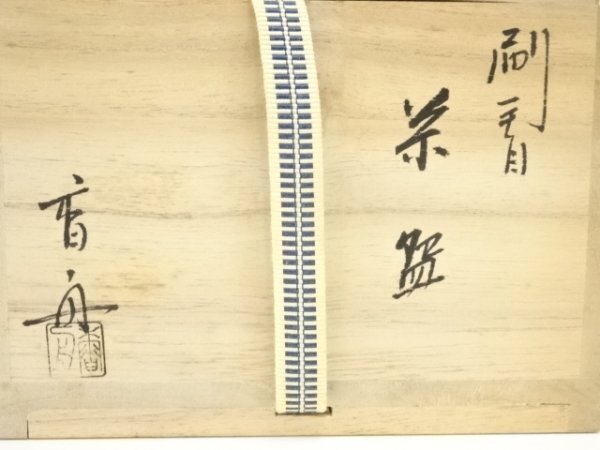 刷毛目
茶盌
香舟